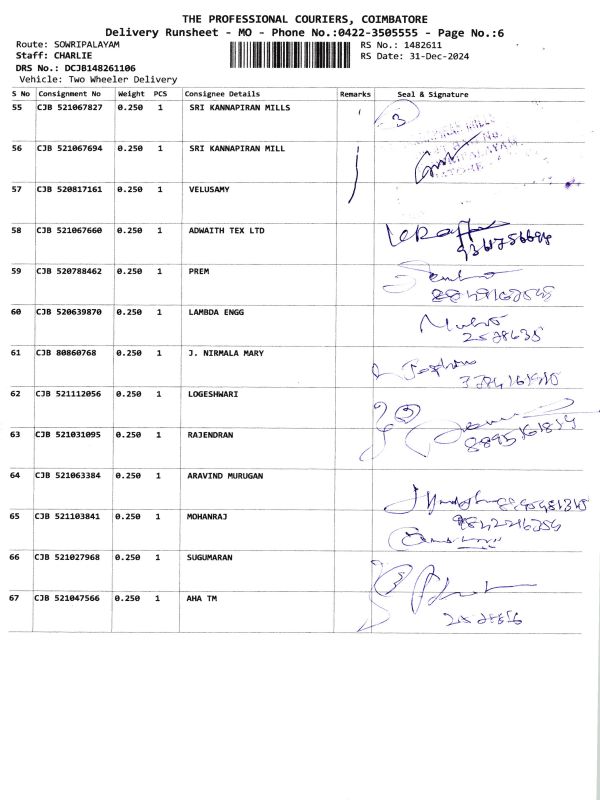 THE PROFESSIONAL COURIERS, COIMBATORE
Delivery Runsheet - MO - Phone No.:0422-3505555 - Page No.:6
Route: SOWRIPALAYAM RS No.: 1482611
Staff: CHARLIE RS Date: 31-Dec-2024
DRS No.: DCJB148261106
Vehicle: Two Wheeler Delivery
S No Consignment No Weight PCS Consignee Details Remarks Seal & Signature
55 CJB 521067827 0.250 1 SRI KANNAPIRAN MILLS 3
56 CJB 521067694 0.250 1 SRI KANNAPIRAN MILL
57 CJB 520817161 0.250 1 VELUSAMY
58 CJB 521067660 0.250 1 ADWAITH TEX LTD
59 CJB 520788462 0.250 1 PREM
60 CJB 520639870 0.250 1 LAMBDA ENGG
61 CJB 80860768 0.250 1 J. NIRMALA MARY
62 CJB 521112056 0.250 1 LOGESHWARI
63 CJB 521031095 0.250 1 RAJENDRAN
64 CJB 521063384 0.250 1 ARAVIND MURUGAN
65 CJB 521103841 0.250 1 MOHANRAJ
66 CJB 521027968 0.250 1 SUGUMARAN
67 CJB 521047566 0.250 1 AHA TM